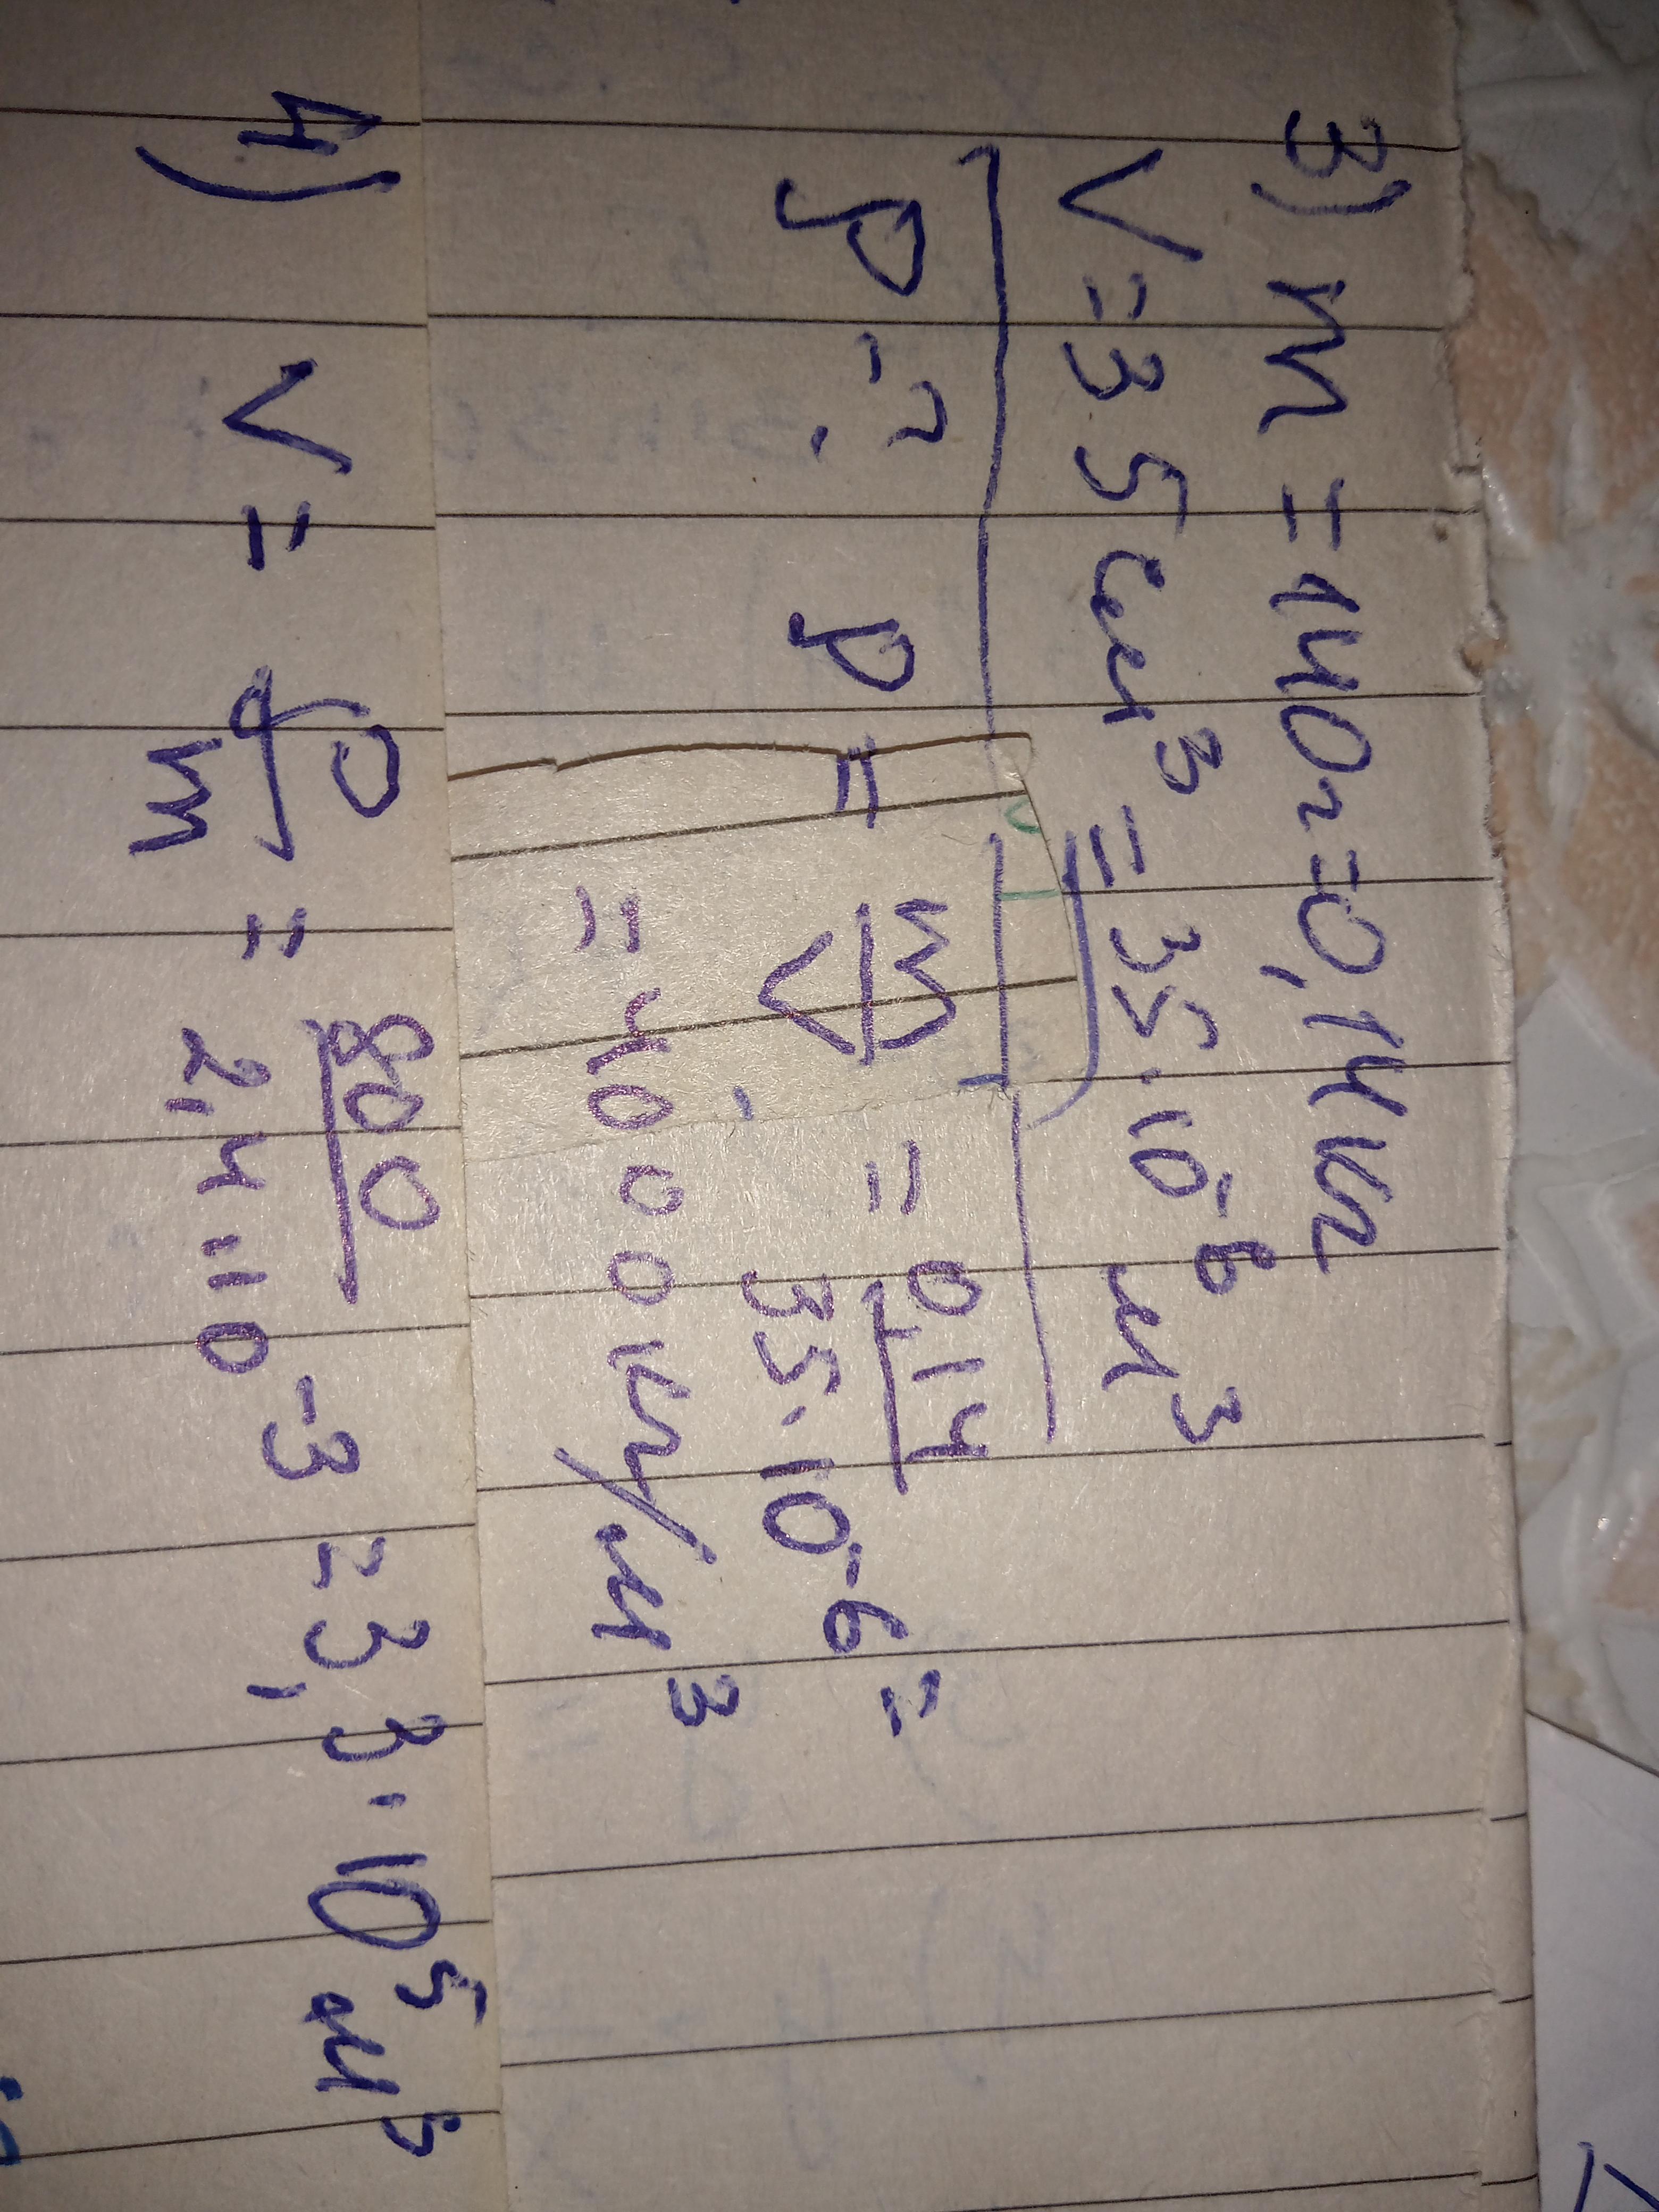 3) m = 140г = 0,14кг
V = 35 см³ = 35·10⁻⁶ м³
ρ - ?
ρ = m/V = 0,14/35·10⁻⁶ =
= 4000 кг/м³
4) V = ρ/m = 800/2,4·10⁻³ = 3,3·10⁵ м³